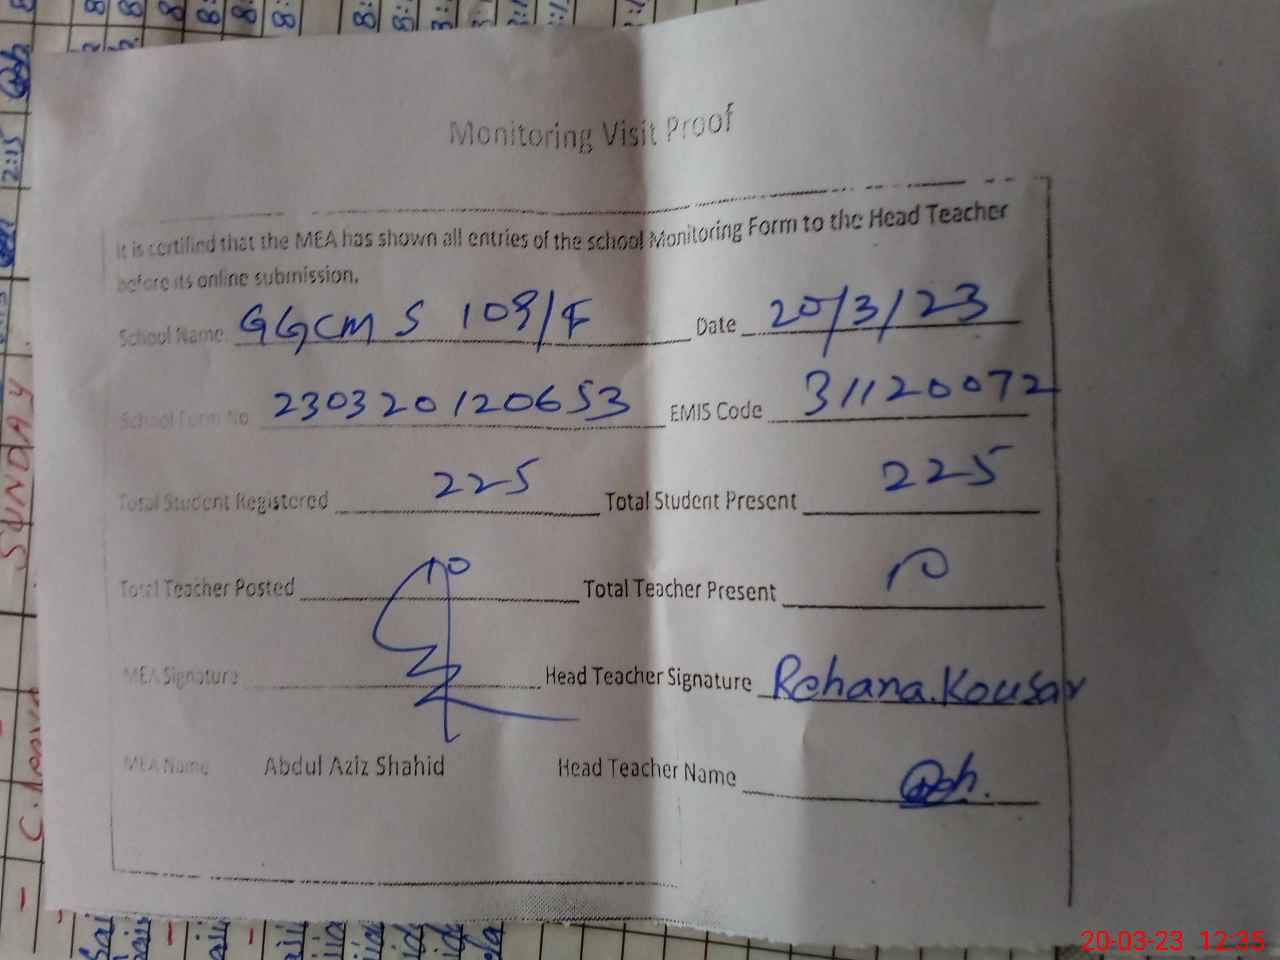 Monitoring Visit Proof
It is certified that the MEA has shown all entries of the school Monitoring Form to the Head Teacher
before its online submission.
School Name GGCMS 109/F Date 20/3/23
School Form No 230320120653 EMIS Code 31120072
Total Student Registered 225 Total Student Present 225
Total Teacher Posted 10 Total Teacher Present 10
MEA Signature Head Teacher Signature Rehana.Kousar
MEA Name Abdul Aziz Shahid Head Teacher Name
SUNDAY
2:15
20-03-23 12:35